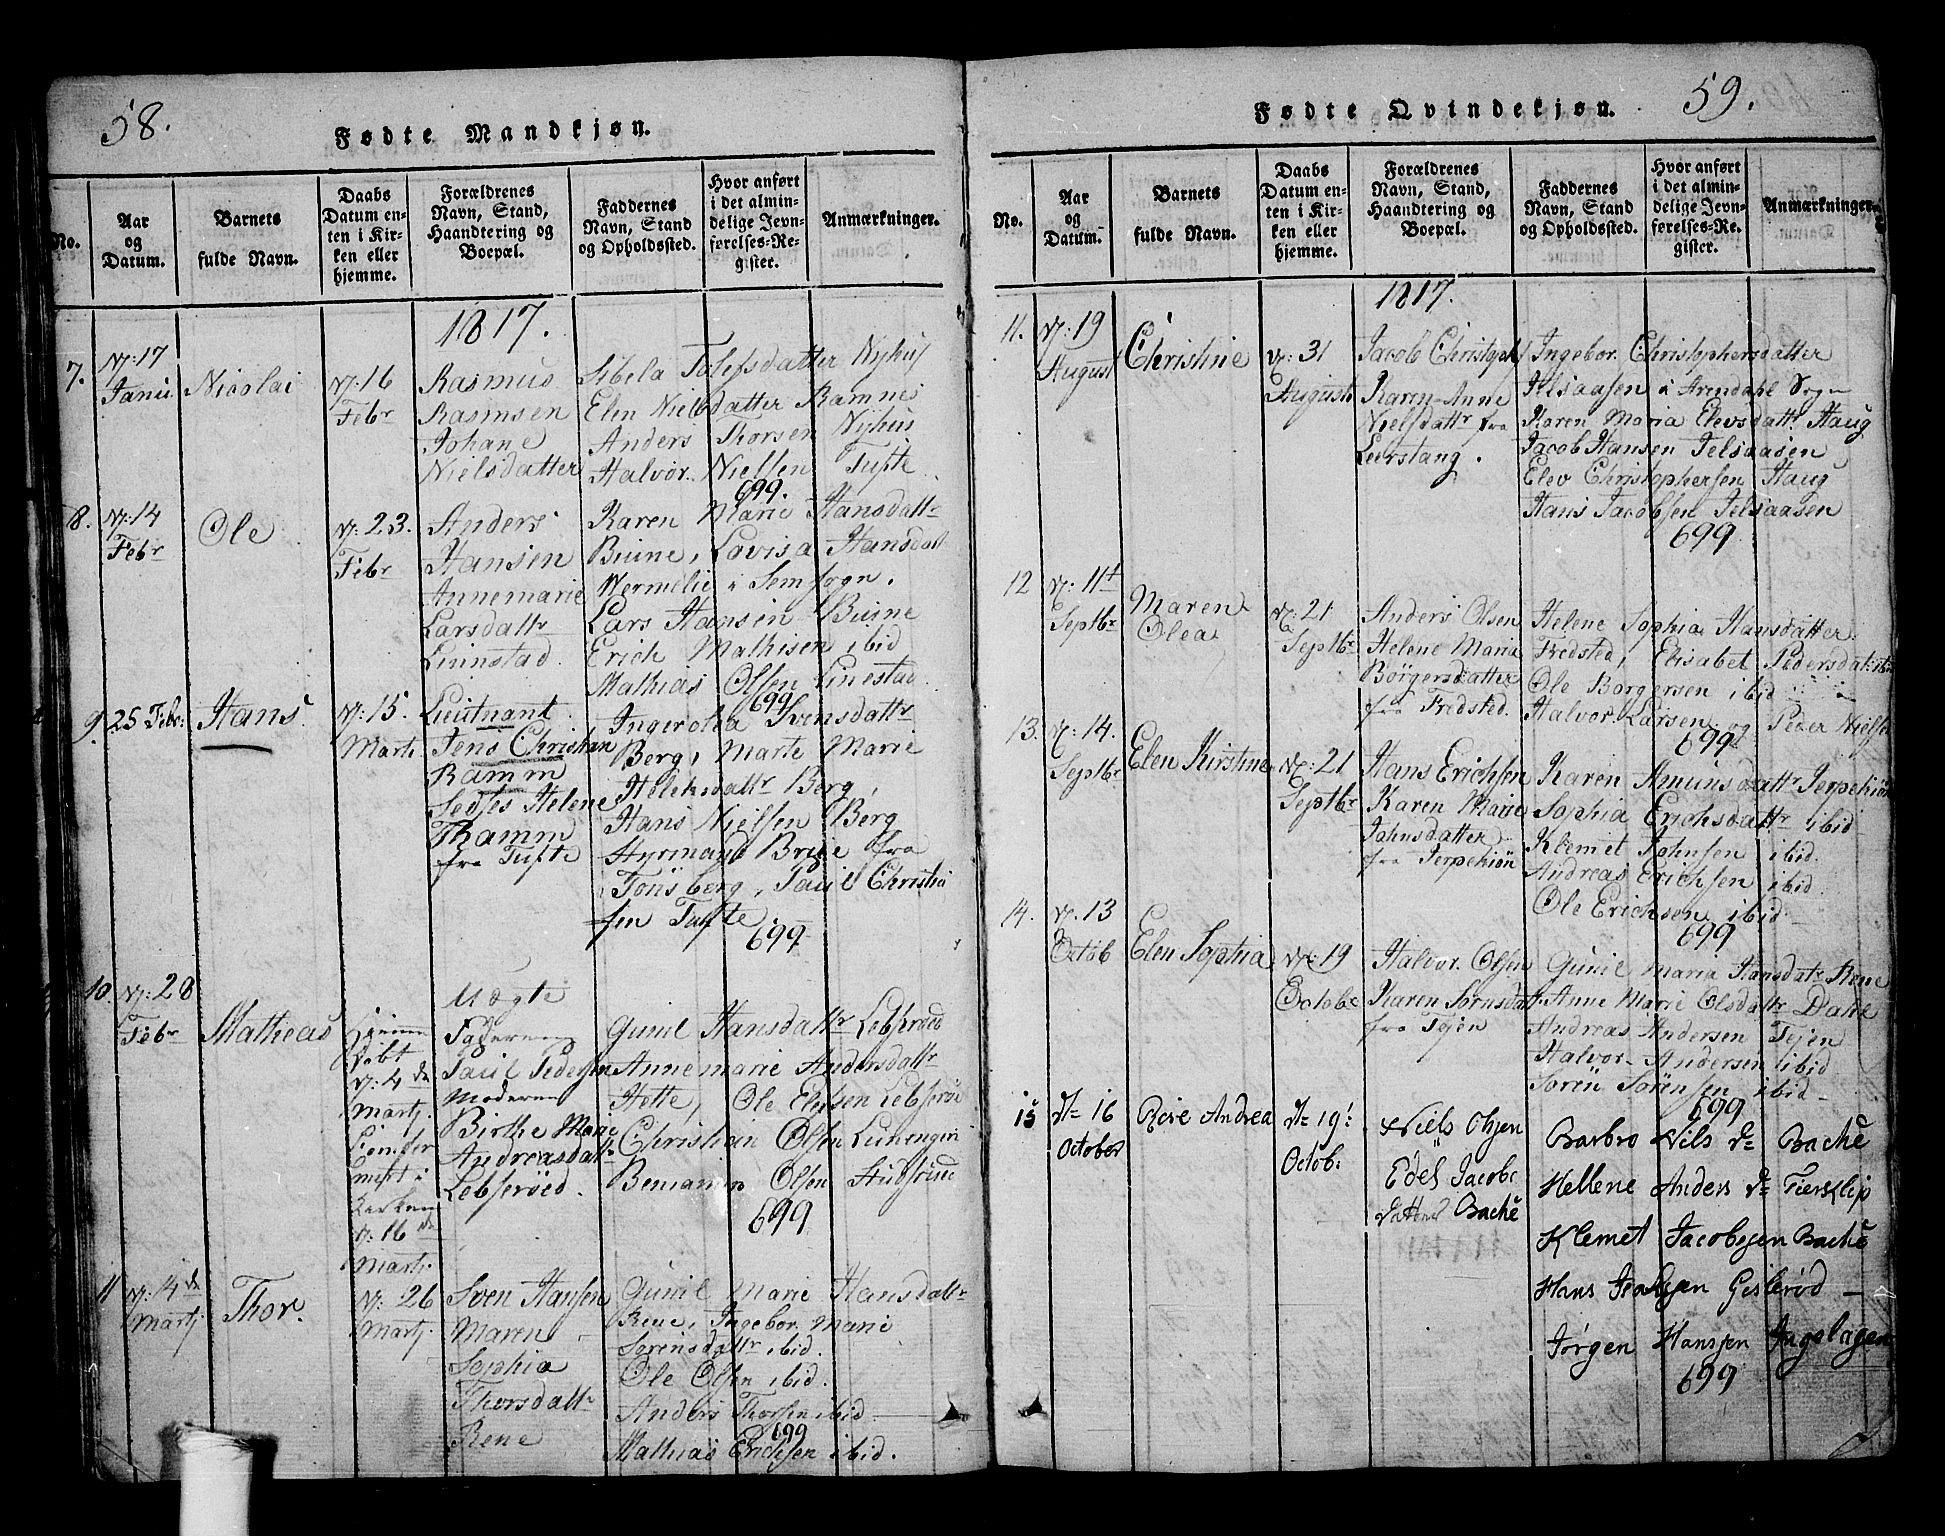 58.
Fødte Mandkjøn.
No.
Aar
og
Datum.
Barnets
fulde Navn.
Daabs
Datum en-
ten i Kir-
ken eller
hjemme.
Forældrenes
Navn, Stand,
Haandtering og
Boepæl.
Faddernes
Navn, Stand
og Opholdssted.
Hvor anført
i det almin-
delige Jevn-
førelses-Re-
gister.
Anmærkninger.
1817.
7.
N: 17
Janu
Nicolai
N: 16
Febr
Rasmus
Rasmsen
Johane
Nielsdatter
Sibela Tolefsdatter Nyhus
Elen Nielsdatter Ramnes
Anders Thorsen Nyhus
Halvor Nielsen Tufte
699.
8.
N: 14
Febr
Ole
N: 23.
Febr
Anders
Hansen
Annemarie
Larsdattr
Linnstad
Karen Marie Hansdattr
Buine, Lovisa Hansdatt
Wermelie i Sem sogn.
Lars Hansen Buine
Erich Mathisen ibid
Mathias Olsen Linestad
699
9.
25 Febr:
Hans
N: 15.
Marti
Lieutnant
Jens Christian
Ramm
Sedses Helene
Thamm
fra Tufte
Ingerolea Svensdattr
Berg, Marte Marie
Holeksdattr Berg,
Hans Nielsen Berg
Hyrmand Brue fra
Tønsberg, Paul Christia
sen Tufte
699
10.
N: 28
Febr
Matheas
Hjemme
døbt
N: 4 de
Martj.
fremster
meft i
Kirken
N: 16 de
Martj.
Uægte
Faderen
Paul Pedersen
Moderen
Birthe Marie
Andreasdattr
Lebserøed.
Gunil Hansdattr Lebserøed
Annemarie Andersdattr
Hotte, Ole Elefsen Lebserøe
Christian Olsen Lunengen
Beniamin Olsen
699
11
N: 4 de
Martj.
Thor.
N: 26
Martj.
Sven Hansen
Maren
Sophia
Thorsdattr
Rene
Gunil Marie Hansdattr
Rene, Ingebor Marie
Sørensdattr ibid.
Ole Olsen ibid.
Anders Thorsen ibid
Mathias Erichsen ibid.
699
59.
Fødte Qvindekjøn.
No.
Aar
og
Datum.
Barnets
fulde Navn.
Daabs
Datum en-
ten i Kir-
ken eller
hjemme.
Forældrenes
Navn, Stand,
Haandtering og
Boepæl.
Faddernes
Navn, Stand
og Opholdssted.
Hvor anført
i det almin-
delige Jevn-
førelses-Re-
gister.
Anmærkninger.
1817.
11.
N: 19
August
Christine
N: 31
Augusti
Jacob Christophs
Karen Anne
Nielsdattr fra
Leerstang.
Ingebor Christophersdatter
Jelsaasen i Arendahl Sogn
Karen Maria Elevsdattr Haug
Jacob Hansen Jelsaasen
Elev Christophersen Haug
Hans Jacobsen Jelsaasen
699
12
N: 11t
Septbr
Maren
Olea
N: 21
Septbr
Anders Olsen
Helene Maria
Børgersdatter
fra Fredsted.
Helene Sophia Hansdatter
Fredsted, Elisabet Pedersdat: ibi
Ole Borgersen ibid
Halvor Larsen og Peder Nielsen
699
13.
N: 14.
Septbr
Elen Kirstine
N: 21
Septbr
Hans Erichsen
Karen Marie
Johnsdatter
fra Jerpekiøn
Karen Amunsdattr Jerpekiøn
Sophia Erichsdattr ibid
Klemet Johnsen ibid.
Andreas Erichsen ibid.
Ole Erichsen ibid
699
14.
N: 13
Octob
Elen Sophia
N: 19
Octobr
Halvor Olsen
Karen Sørnsdatt
fra Tejen
Gunil Maria Hansdatr Rene
Anne Marie Olsdattr Dahl
Andreas Andersen Tejen
Halvor Andersen ibid
Søren Sørensen ibid
699
15
d= 16
October
Rosie Andrea
d= 19:
Octob:
Niels Ohjen
Edel Jacobs
datter Bache
Barbro Nils D= Bache
Hellene Anders D= Fiersklip
Klemet Jacobsen Bache
Hans Gislerød
Jørgen Hanssen Ingolagen
699